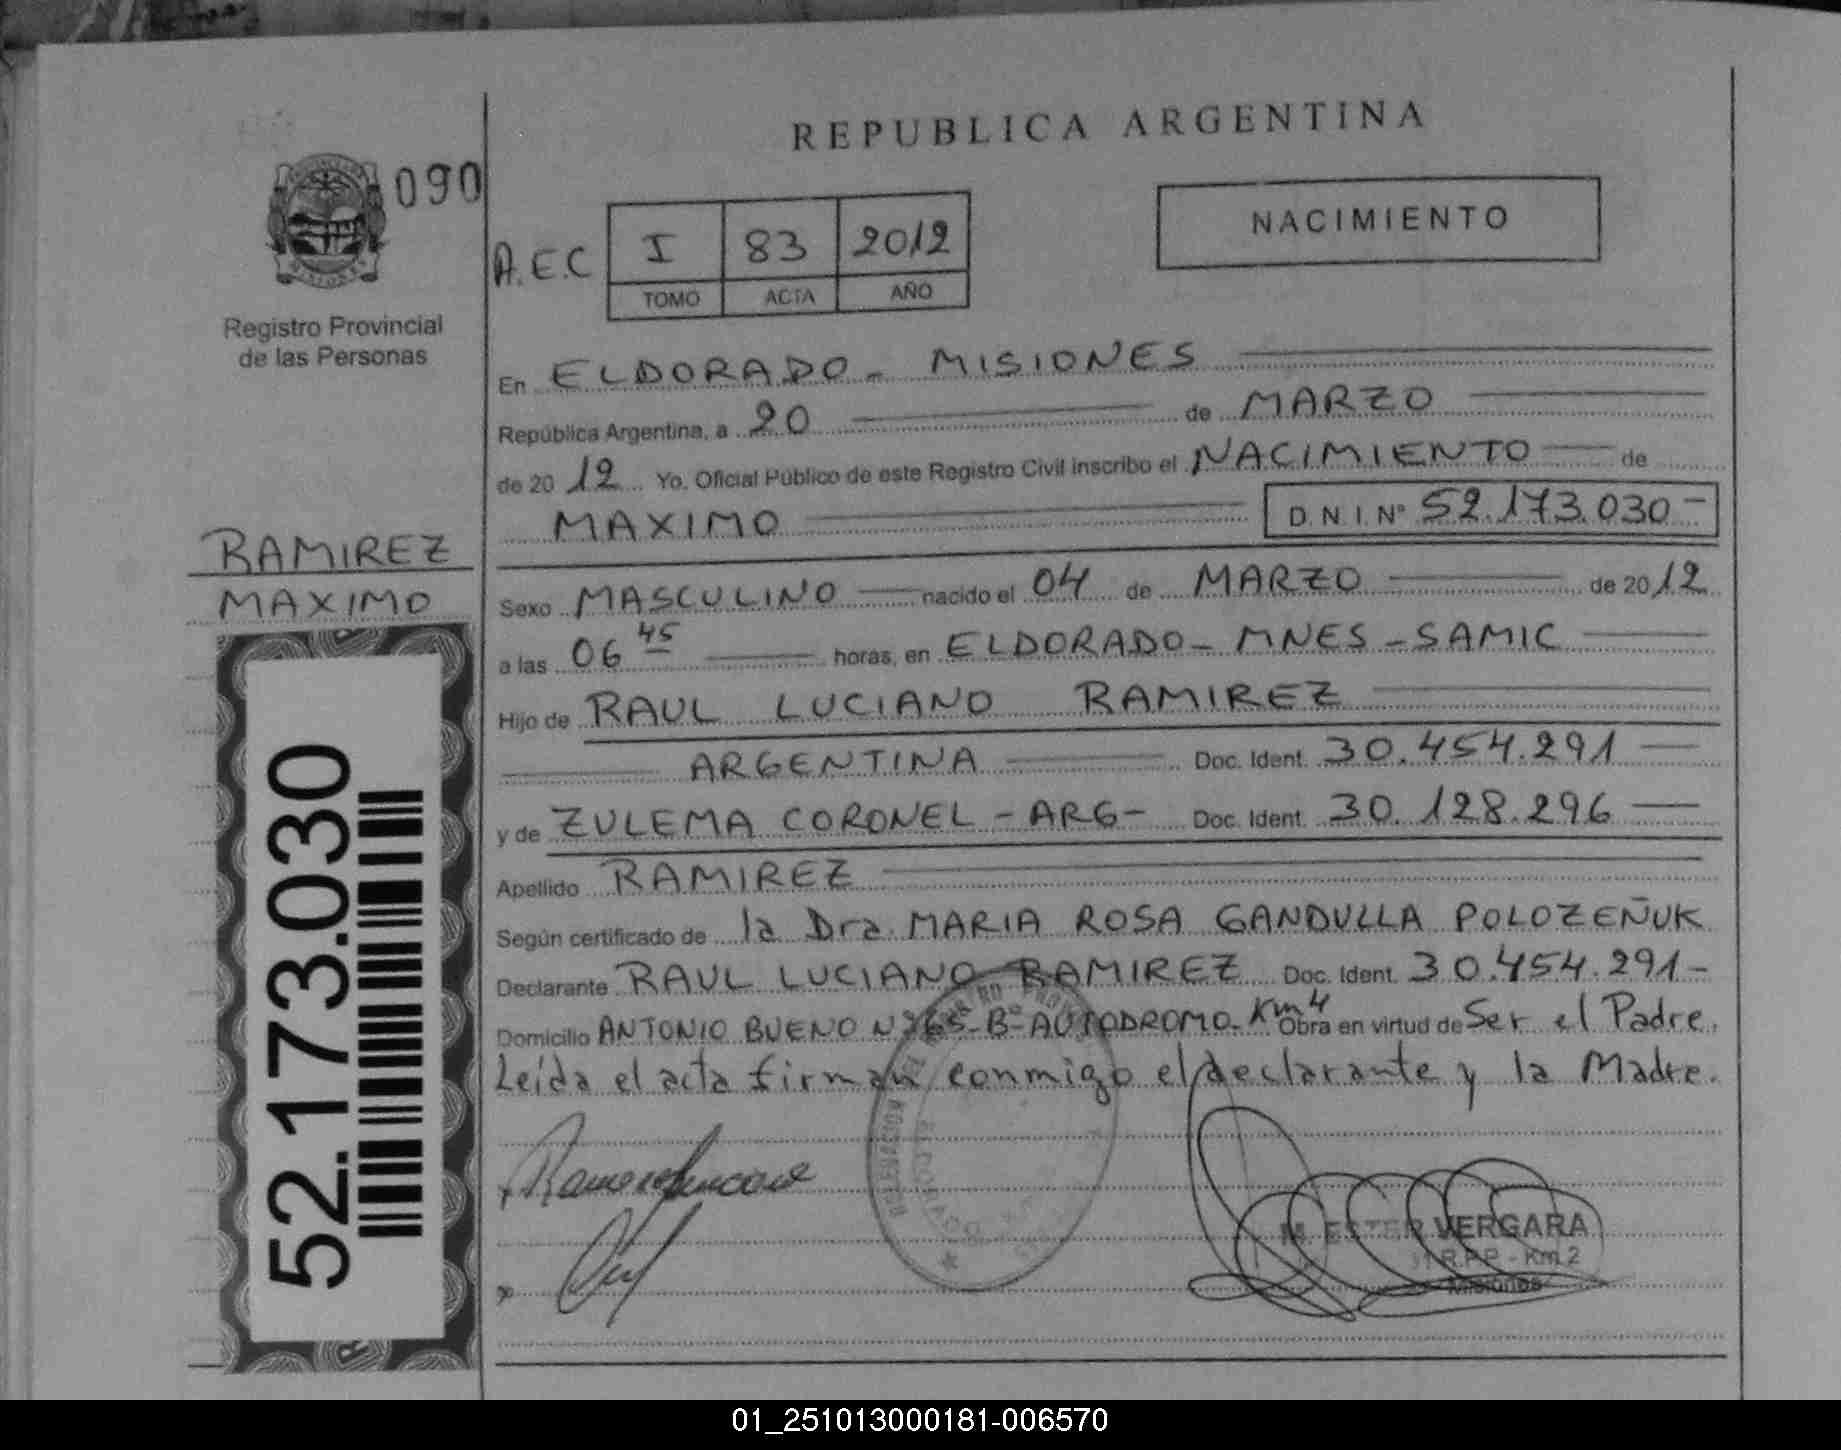 REPUBLICA ARGENTINA
090
NACIMIENTO
A.E.C I 83 2012
TOMO ACTA AÑO
Registro Provincial
de las Personas
En ELDORADO - MISIONES
República Argentina, a 20 de MARZO
de 2012 Yo. Oficial Público de este Registro Civil inscribo el NACIMIENTO de
MAXIMO D.N.I. Nº 52.173.030-
RAMIREZ
MAXIMO
Sexo MASCULINO nacido el 04 de MARZO de 2012
a las 06 45 horas, en ELDORADO - MNES - SAMIC
Hijo de RAUL LUCIANO RAMIREZ
ARGENTINA Doc. Ident. 30.454.291
y de ZULEMA CORONEL - ARG - Doc. Ident. 30.128.296
Apellido RAMIREZ
Según certificado de la Dra MARIA ROSA GANDULLA POLOZEÑUK
Declarante RAUL LUCIANO RAMIREZ Doc. Ident. 30.454.291-
Domicilio ANTONIO BUENO Nº 65 - Bº AUTODROMO - Km 4 Obra en virtud de Ser el Padre.
Leída el acta firman conmigo el declarante y la Madre.
52.173.030
M. ESTER VERGARA
R.P.P - Km 2
Misiones
01_251013000181-006570